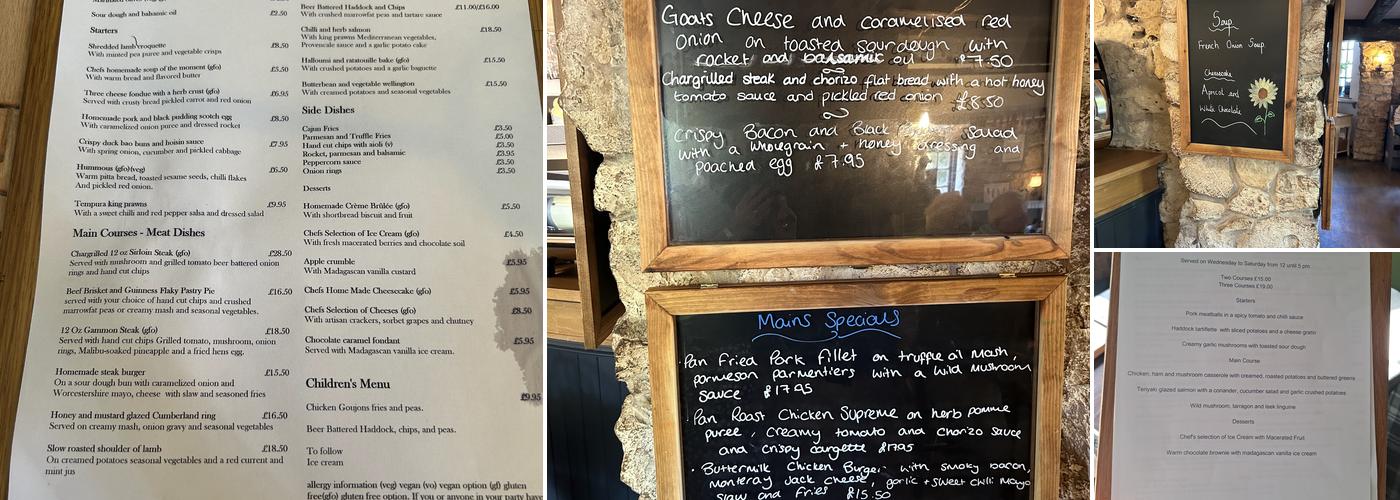 Sour dough and balsamic oil £2.50
Starters
Shredded lamb croquette £8.50
With minted pea puree and vegetable crisps
Chefs homemade soup of the moment (gfo) £5.50
With warm bread and flavored butter
Three cheese fondue with a herb crust (gfo) £6.95
Served with crusty bread pickled carrot and red onion
Homemade pork and black pudding scotch egg £8.50
With caramelized onion puree and dressed rocket
Crispy duck bao buns and hoisin sauce £7.95
With spring onion, cucumber and pickled cabbage
Hummous (gfo)(veg) £6.50
Warm pitta bread, toasted sesame seeds, chilli flakes
And pickled red onion.
Tempura king prawns £9.95
With a sweet chilli and red pepper salsa and dressed salad
Main Courses - Meat Dishes
Chargrilled 12 oz Sirloin Steak (gfo) £28.50
Served with mushroom and grilled tomato beer battered onion
rings and hand cut chips
Beef Brisket and Guinness Flaky Pastry Pie £16.50
served with your choice of hand cut chips and crushed
marrowfat peas or creamy mash and seasonal vegetables.
12 Oz Gammon Steak (gfo) £18.50
Served with hand cut chips Grilled tomato, mushroom, onion
rings, Malibu-soaked pineapple and a fried hens egg.
Homemade steak burger £15.50
On a sour dough bun with caramelized onion and
Worcestershire mayo, cheese with slaw and seasoned fries
Honey and mustard glazed Cumberland ring £16.50
Served on creamy mash, onion gravy and seasonal vegetables
Slow roasted shoulder of lamb £18.50
On creamed potatoes seasonal vegetables and a red currant and
mint jus
Beer Battered Haddock and Chips £11.00/£16.00
With crushed marrowfat peas and tartare sauce
Chilli and herb salmon £18.50
With king prawns Mediterranean vegetables,
Provencale sauce and a garlic potato cake
Halloumi and ratatouille bake (gfo) £15.50
With crushed potatoes and a garlic baguette
Butterbean and vegetable wellington £15.50
With creamed potatoes and seasonal vegetables
Side Dishes
Cajun Fries £3.50
Parmesan and Truffle Fries £5.00
Hand cut chips with aioli (v) £3.50
Rocket, parmesan and balsamic £3.95
Peppercorn sauce £3.50
Onion rings £3.50
Desserts
Homemade Crème Brûlée (gfo) £5.50
With shortbread biscuit and fruit
Chefs Selection of Ice Cream (gfo) £4.50
With fresh macerated berries and chocolate soil
Apple crumble £5.95
With Madagascan vanilla custard
Chefs Home Made Cheesecake (gfo) £5.95
Chefs Selection of Cheeses (gfo) £8.50
With artisan crackers, sorbet grapes and chutney
Chocolate caramel fondant £5.95
Served with Madagascan vanilla ice cream.
Children's Menu
£9.95
Chicken Goujons fries and peas.
Beer Battered Haddock, chips, and peas.
To follow
Ice cream
allergy information (veg) vegan (vo) vegan option (gf) gluten
free(gfo) gluten free option. If you or anyone in your party have
Goats Cheese and caramelised red
onion on toasted sourdough with
rocket and balsamic oil £7.50
Chargrilled steak and chorizo flat bread with a hot honey
tomato sauce and pickled red onion £8.50
Crispy Bacon and Black Salad
with a wholegrain + honey dressing and
poached egg £7.95
Mains Specials
· Pan Fried Pork fillet on truffle oil Mash,
parmesan parmentiers with a wild mushroom
sauce £17.95
· Pan Roast Chicken Supreme on herb pomme
puree, creamy tomato and chorizo sauce
and crispy courgette £17.95
· Buttermilk Chicken Burger with smoky bacon,
monteray Jack cheese, garlic + sweet chilli mayo
slaw and fries £15.50
Soup
French Onion Soup
Cheesecake
Apricot and
White Chocolate
Served on Wednesday to Saturday from 12 until 5 pm
Two Courses £15.00
Three Courses £19.00
Starters
Pork meatballs in a spicy tomato and chilli sauce
Haddock tartiflette with sliced potatoes and a cheese gratin
Creamy garlic mushrooms with toasted sour dough
Main Course
Chicken, ham and mushroom casserole with creamed, roasted potatoes and buttered greens
Teriyaki glazed salmon with a coriander, cucumber salad and garlic crushed potatoes
Wild mushroom, tarragon and leek linguine
Desserts
Chef's selection of Ice Cream with Macerated Fruit
Warm chocolate brownie with madagascan vanilla ice cream